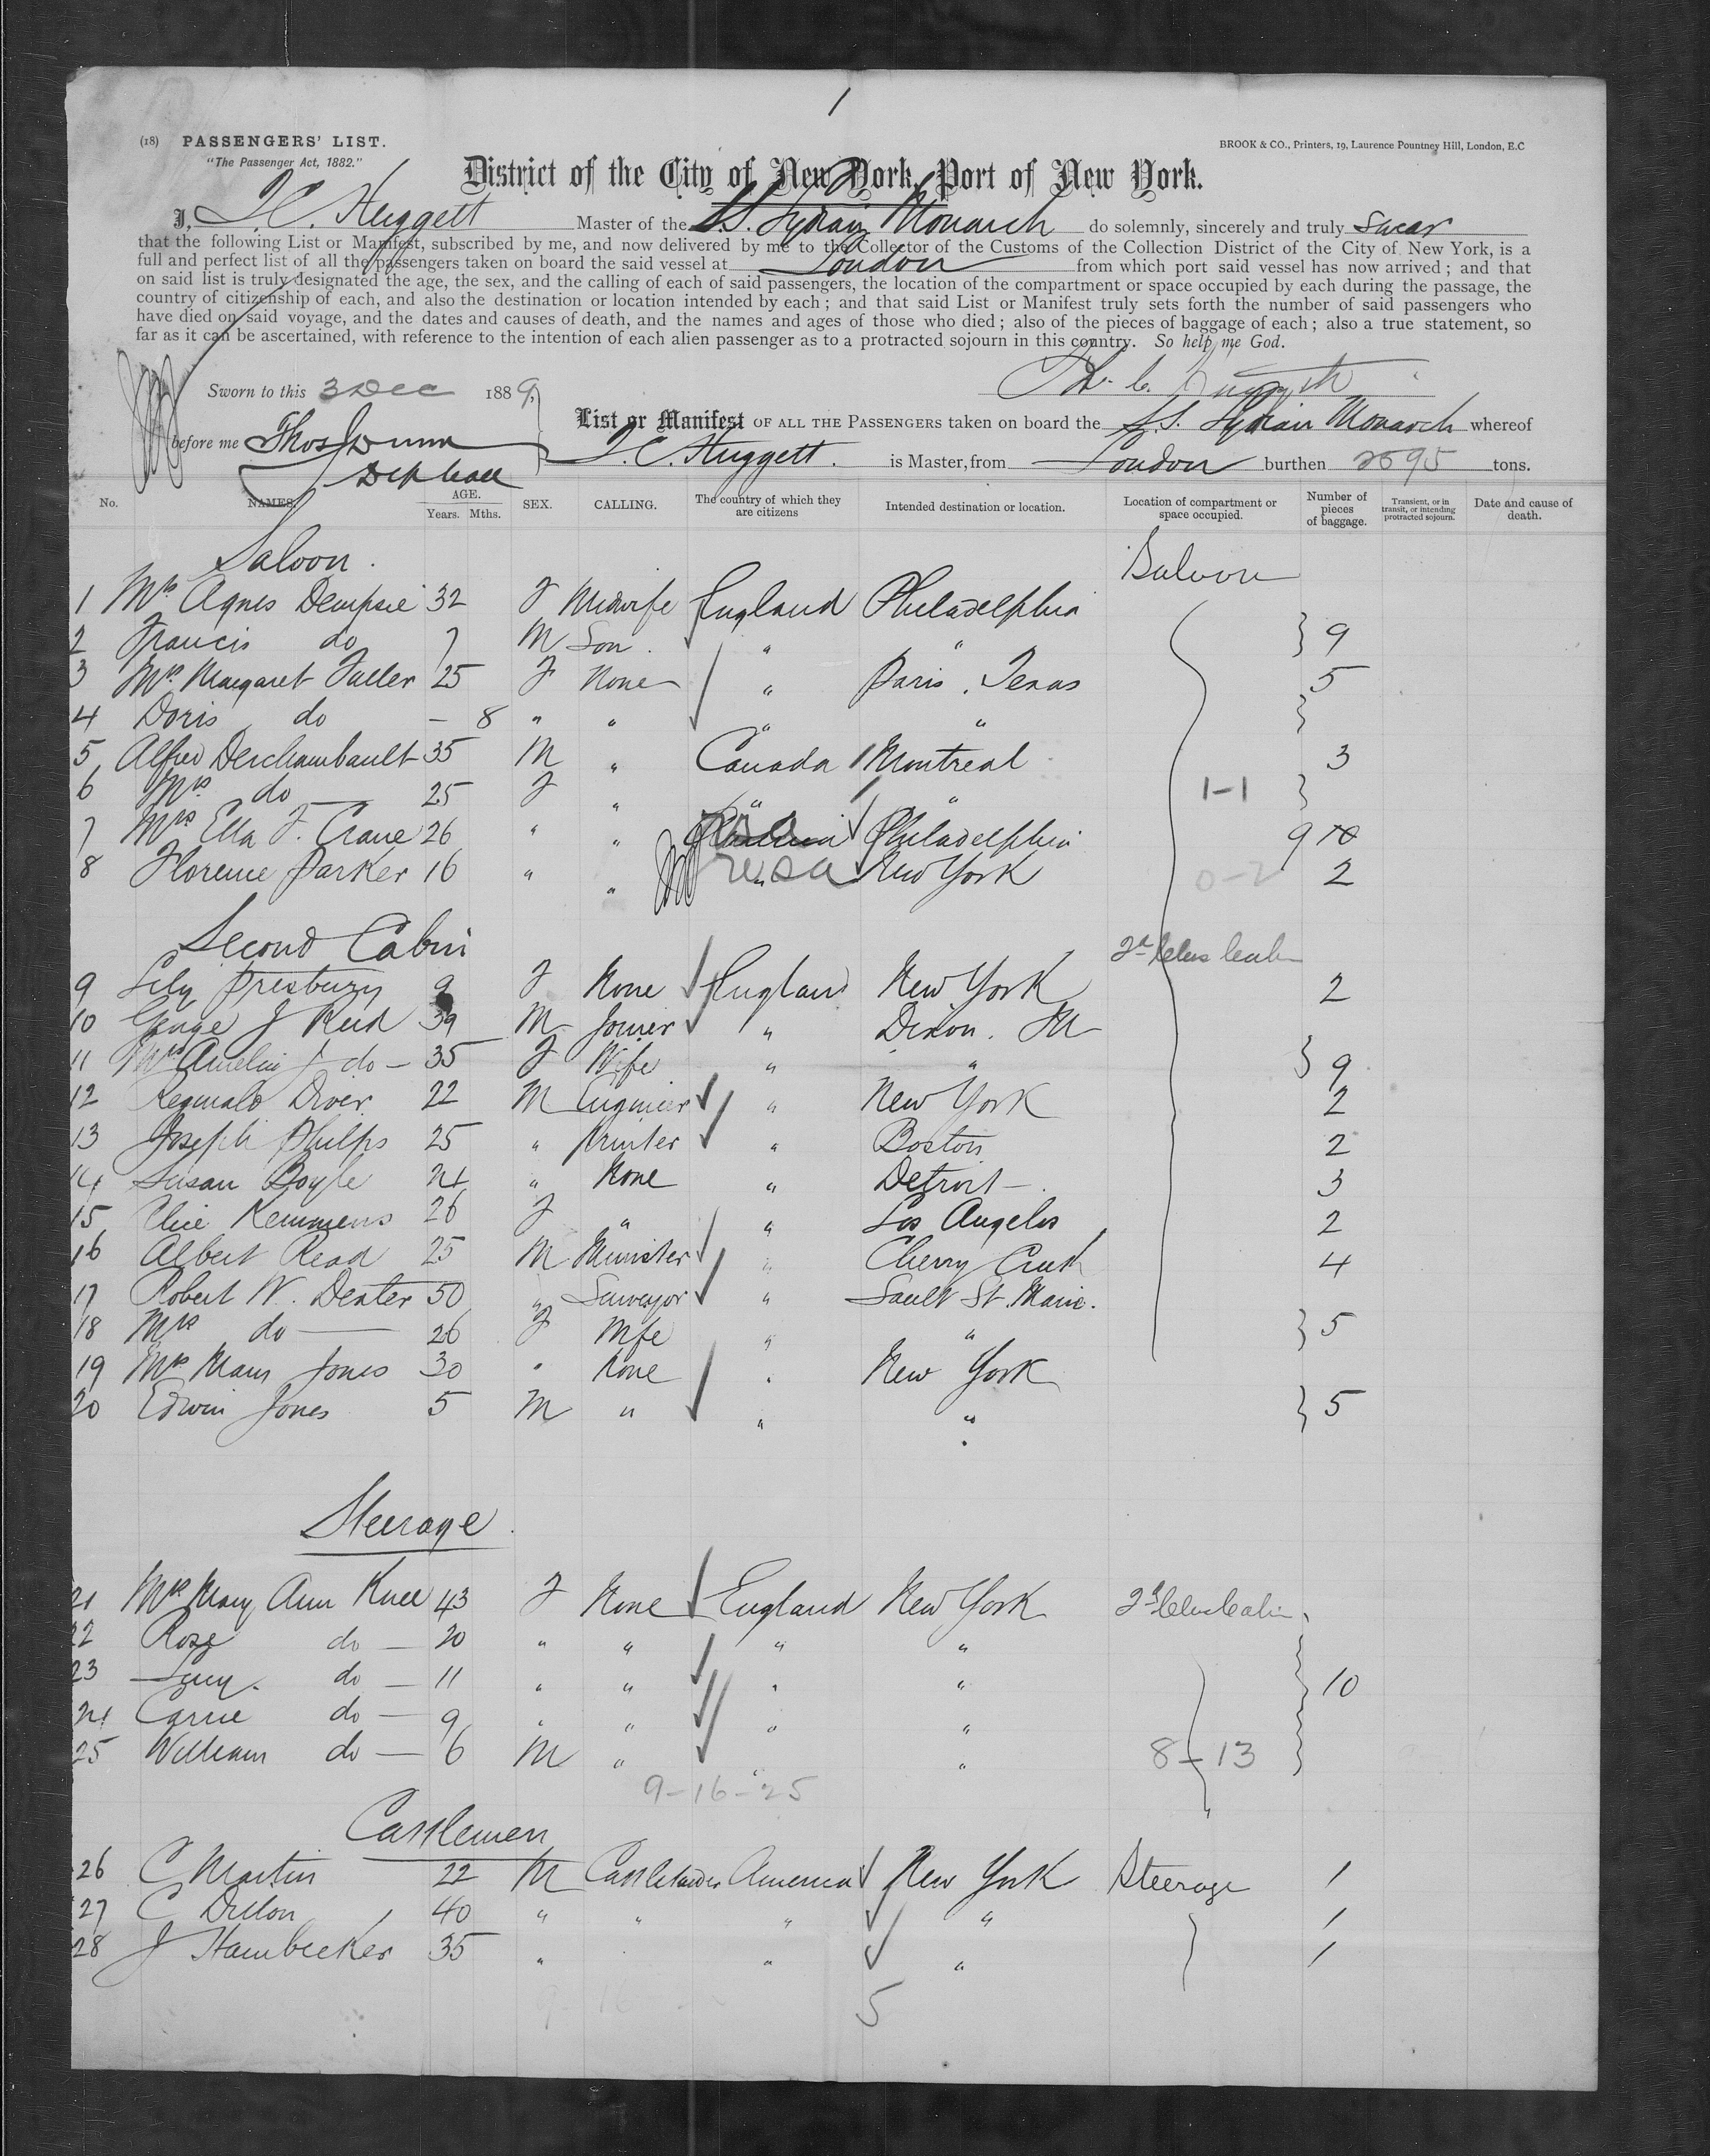 1
(18) PASSENGERS' LIST.
"The Passenger Act, 1882."
BROOK & CO., Printers, 19, Laurence Pountney Hill, London, E.C
District of the City of New York, Port of New York.
I, T. C. Huggett Master of the S.S. Lydian Monarch do solemnly, sincerely and truly swear
that the following List or Manifest, subscribed by me, and now delivered by me to the Collector of the Customs of the Collection District of the City of New York, is a
full and perfect list of all the passengers taken on board the said vessel at London from which port said vessel has now arrived; and that
on said list is truly designated the age, the sex, and the calling of each of said passengers, the location of the compartment or space occupied by each during the passage, the
country of citizenship of each, and also the destination or location intended by each; and that said List or Manifest truly sets forth the number of said passengers who
have died on said voyage, and the dates and causes of death, and the names and ages of those who died; also of the pieces of baggage of each; also a true statement, so
far as it can be ascertained, with reference to the intention of each alien passenger as to a protracted sojourn in this country. So help me God.
Sworn to this 3 Dec 1889,
before me Thos Dunn
List or Manifest OF ALL THE PASSENGERS taken on board the S.S. Lydian Monarch whereof
T. C. Huggett. is Master, from London burthen 2695 tons.
No. NAMES. AGE. Years. Mths. SEX. CALLING. The country of which they are citizens Intended destination or location. Location of compartment or space occupied. Number of pieces of baggage. Transient, or in transit, or intending protracted sojourn. Date and cause of death.
Saloon. Saloon
1 Mrs Agnes Dempsie 32 F Midwife England Philadelphia
2 Francis do 7 M Son. " " } 9
3 Mrs Margaret Fuller 25 F None " Paris, Texas 5
4 Doris do — 8 " " " " }
5 Alfred Derchambault 35 M " Canada Montreal 3
6 Mrs do 25 F " " " 1-1 }
7 Mrs Ella F. Crane 26 " " USA Philadelphia 9 10
8 Florence Parker 16 " " USA New York 0-2 2
Second Cabin
9 Lily Presbury 9 F None England New York 2
10 George J Reid 39 M Joiner " Dixon. Ill
11 Mrs Amelia J do — 35 F Wife " " } 9
12 Reginald Diver 22 M Engineer " New York 2
13 Joseph Phelps 25 " Printer " Boston 2
14 Susan Boyle 24 " None " Detroit — 3
15 Alice Kemmens 26 F " " Los Angelos 2
16 Albert Read 25 M Minister " Cherry Creek 4
17 Robert W. Dexter 50 " Surveyor " Sault St. Marie.
18 Mrs do — 26 F Wife " " } 5
19 Mrs Mary Jones 30 " None " New York
20 Edwin Jones 5 M " " " } 5
Steerage
21 Mrs Mary Ann Knee 43 F None England New York
22 Rose do — 20 " " " "
23 Lucy. do — 11 " " " " 10
24 Carrie do — 9 " " " "
25 William do — 6 M " " " 8-13
9-16-25
Cattlemen
26 C Martin 22 M Cattletender America New York Steerage 1
27 C Dillon 40 " " " " 1
28 J Hambecker 35 " " " 1
5